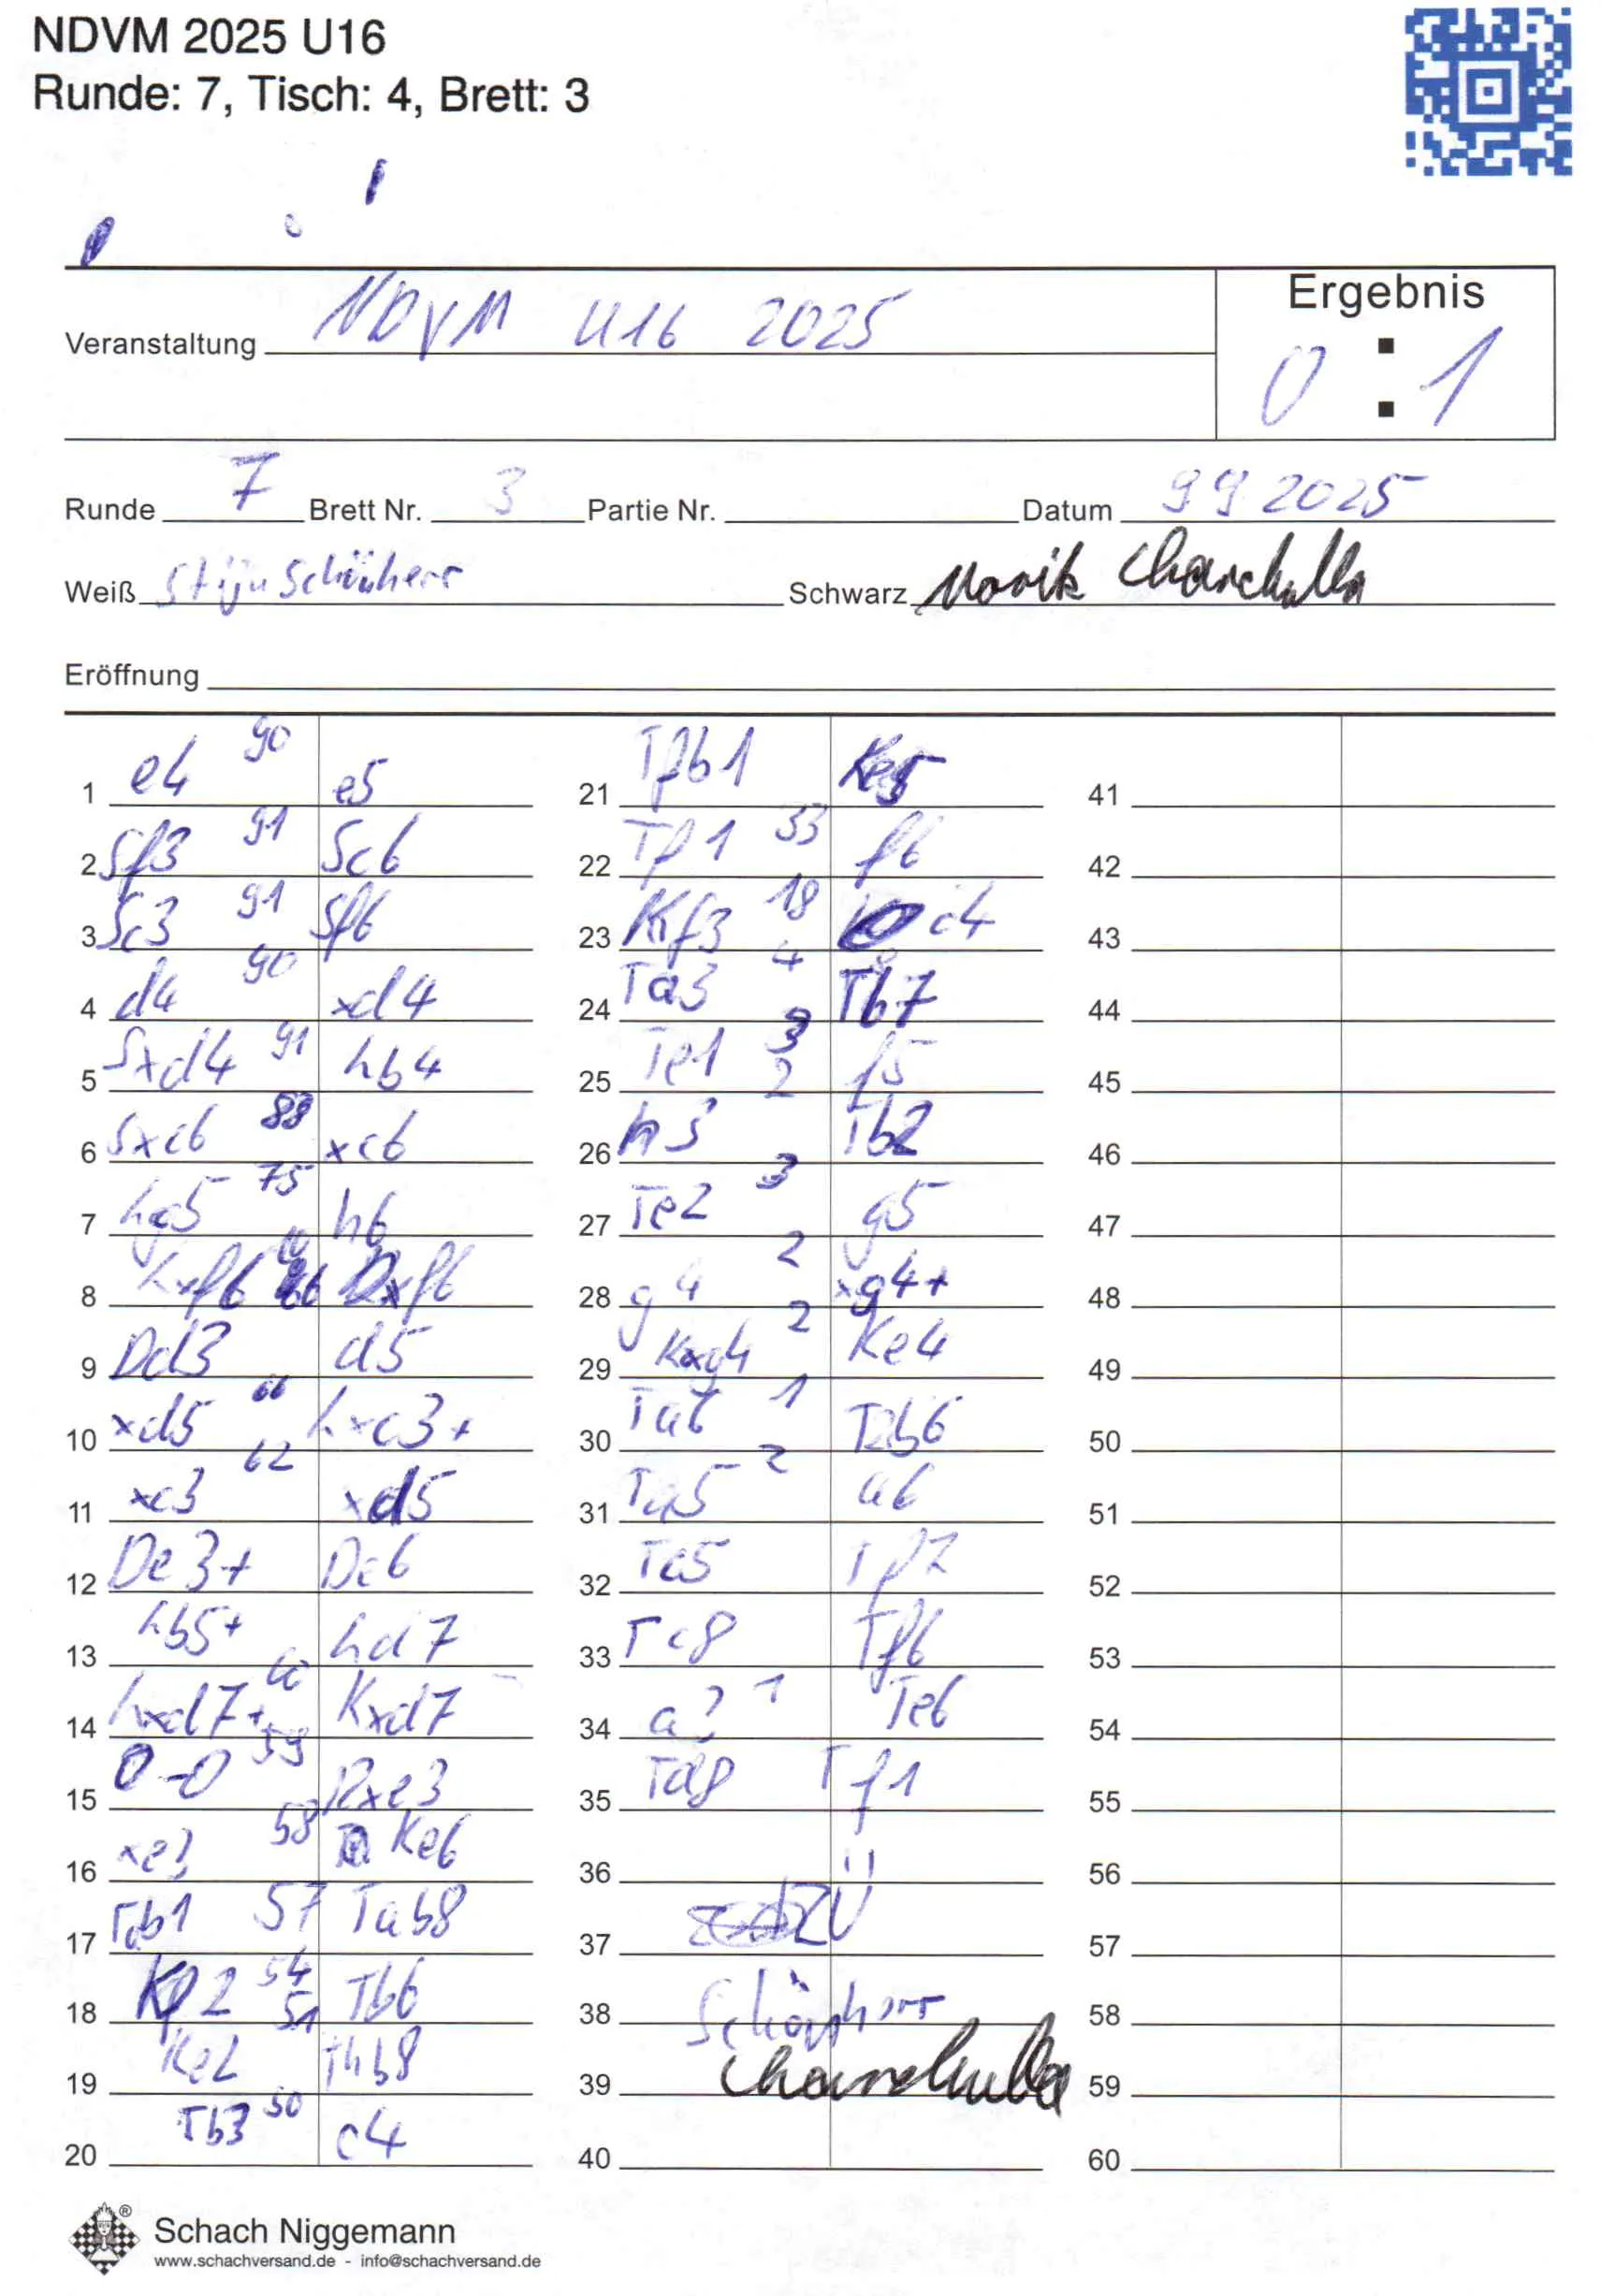 NDVM 2025 U16
Runde: 7, Tisch: 4, Brett: 3
Ergebnis
Veranstaltung NDVM U16 2025
0 : 1
Runde 7 Brett Nr. 3 Partie Nr. Datum 9 9 2025
Weiß Stijn Schönherr Schwarz Marik
Eröffnung
1 e4 90 e5
2 Sf3 91 Sc6
3 Sc3 91 Sf6
4 d4 90 xd4
5 Sxd4 91 Lb4
6 Sxc6 88 xc6
7 Lg5 75 h6
8 Lxf6 66 Dxf6
9 Dd3 d5
10 xd5 66 Lxc3+
11 xc3 62 xd5
12 De3+ De6
13 Lb5+ Ld7
14 Lxd7+ 60 Kxd7
15 0-0 59 Dxe3
16 xe3 58 Ke6
17 Tab1 57 Tab8
18 Kf2 54 Tb6
19 Ke2 51 Thb8
20 Tb3 50 c4
21 Tfb1 Ke5
22 Tf1 33 f6
23 Kf3 18 c4
24 Ta3 4 Tb7
25 Te1 3 f5
26 h3 2 Tb2
27 Te2 3 g5
28 g4 2 xg4+
29 Kxg4 2 Ke4
30 Ta6 1 T2b6
31 Ta5 2 a6
32 Tc5 Tf7
33 Tc8 Tf6
34 a3 1 Te6
35 Td8 Tf1
36
37 ZÜ
38 Schönherr
39
40
41
42
43
44
45
46
47
48
49
50
51
52
53
54
55
56
57
58
59
60
Schach Niggemann
www.schachversand.de - info@schachversand.de